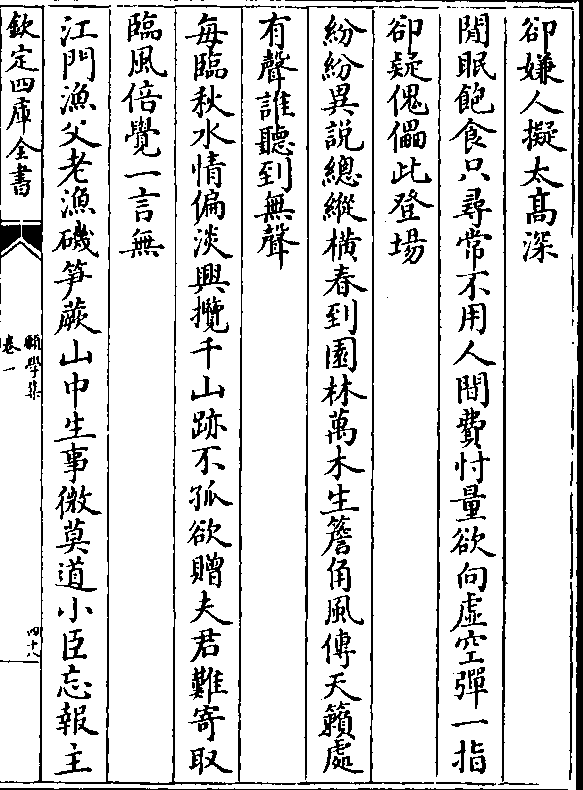 卻嫌人擬太髙深
閒眠飽食只尋常不用人間費忖量欲向虛空彈一指
卻疑傀儡此登場
紛紛異説總縱横春到園林萬木生簷角風傳天籟處
有聲誰聽到無聲
每臨秋水情偏淡興攬千山跡不孤欲贈夫君難寄取
臨風倍覺一言無
江門漁父老漁磯笋蕨山中生事微莫道小臣忘報主
欽定四庫全書
卷一
四十八